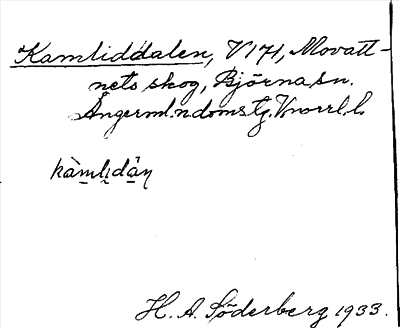 Kamliddalen, V171, Movatt-
nets skog, Björna sn.
Ångerml. n domstg. Vnorrl. l.
kàmlidàn
H. A. Söderberg 1933.